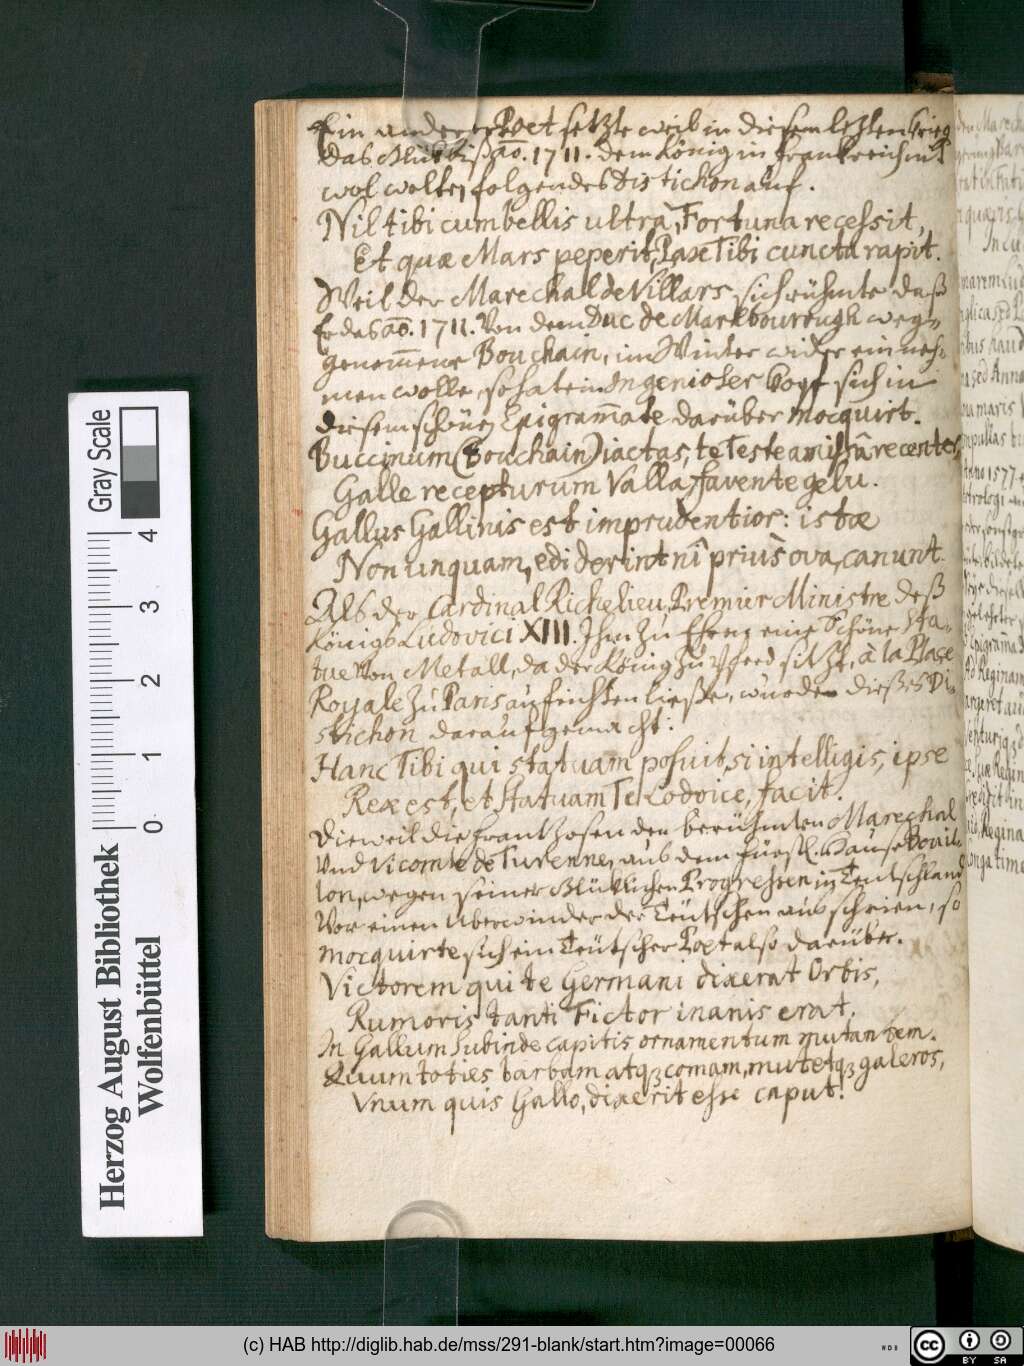 Ein anderer Poet setzte weil in diesem letzten Krieg
das Glück biß ao. 1711. dem König in Franckreich nit
wol wolte, folgendes Distichon auf.
Nil tibi cum bellis ultra, Fortuna recessit,
Et quæ Mars peperit, Pax Tibi cuncta rapit.
Weil der Marechal de Villars sich rühmte daß
Er das ao. 1711. Von dem Duc de Marlbourough weg-
genom̄ene Bouchain, im Winter wider einneh-
men wolle, so hat ein Ingenioser Kopf sich in
diesem schönen Epigram̄ate darüber mocquirt.
Buccinum (Bouchain) iactas, te Teste amissa recenter,
Galle recepturum Valla, favente gelu.
Gallus Gallinis est imprudentior: istæ
Non unquam, ediderint ni prius ova, canunt.
Als der Cardinal Richelieu, Premier Ministre deß
Königs Ludovici XIII. Ihm zu Ehren eine schöne Sta-
tue Von Metall, da der König zu Pferd sitzt, à la Place
Royale zu Paris aufrichten ließe, wurde dießes Di-
stichon darauf gemacht:
Hanc Tibi qui statuam posuit, si intelligis, ipse
Rex est, et statuam Te Lodoice, facit.
Dieweil die Frantzosen den berühmten Marechal
Und Vicomte de Turenne, aus dem Fürstl. Hause Bouil-
lon, wegen seiner Glücklichen Progressen in Teutschland
Vor einen Uberwinder der Teütschen ausschrien, so
mocquirte sich ein Teütscher Poet also darüber.
Victorem qui te Germani dixerat Orbis,
Rumoris tanti Fictor inanis erat.
In Gallum subinde capitis ornamentum mutantem.
Quum toties barbam atqꝫ comam, mutetqꝫ galeros,
Vnum quis Gallo, dixerit esse caput!
Gray Scale
4
3
2
1
0
Herzog August Bibliothek
Wolfenbüttel
(c) HAB http://diglib.hab.de/mss/291-blank/start.htm?image=00066
WDB
CC BY SA